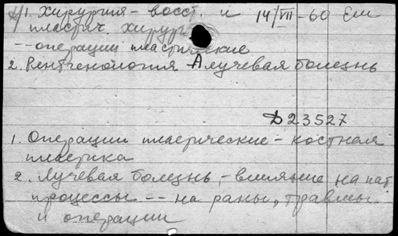 1. Хирургия - восст. и 14/VII-60 Ем
пластич. хирург
-- операции пластические
2. Рентгенология Лучевая болезнь
Д23527
1. Операции пластические - костная
пластика
2. Лучевая болезнь, - влияние на пат.
процессы -- на раны, травмы
и операции